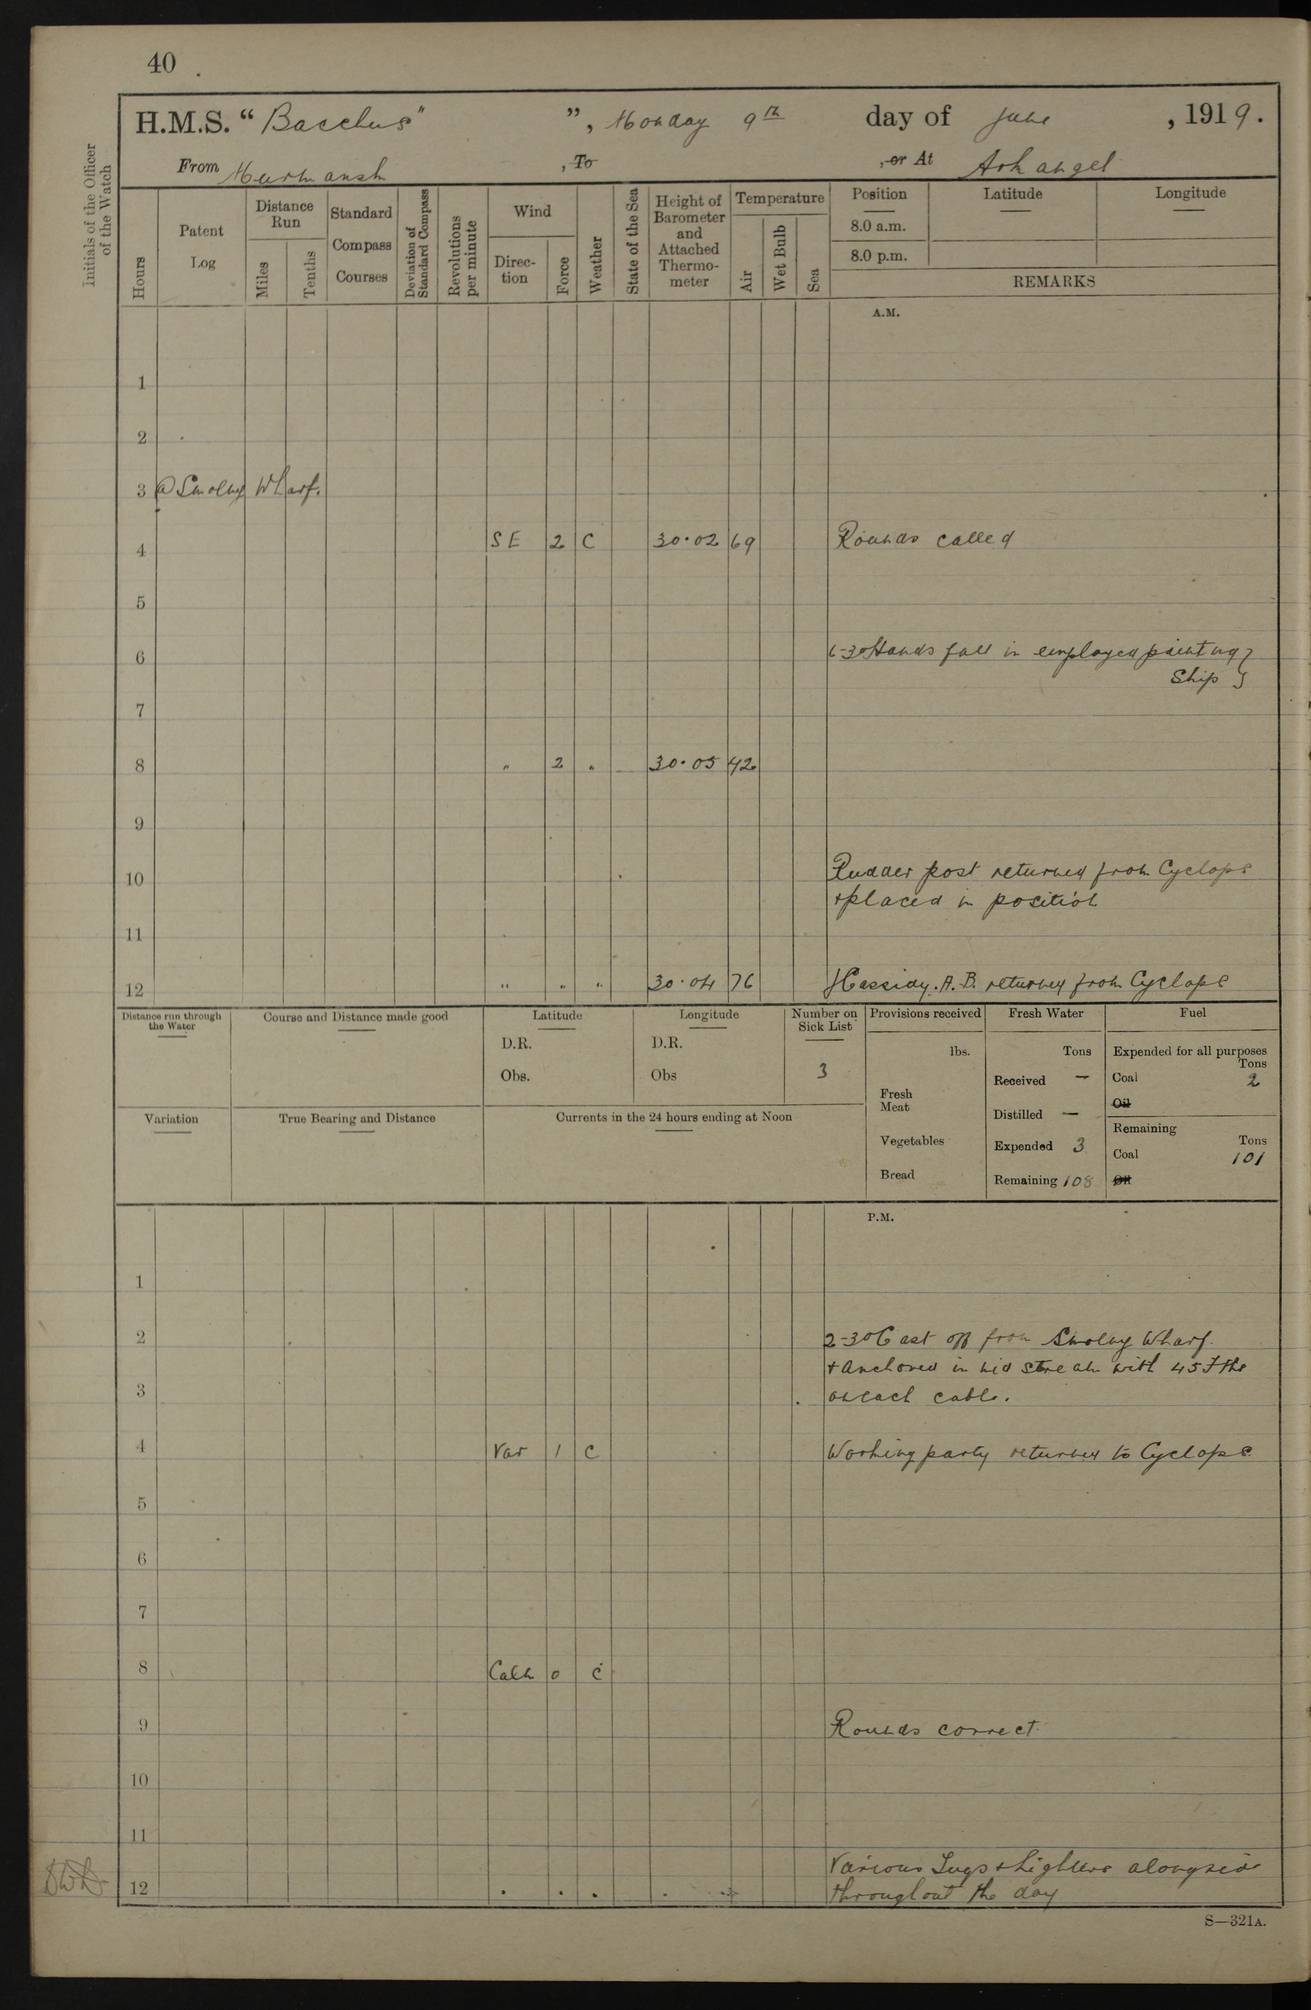 40
H.M.S. "Bacchus" ", Monday 9th day of June, 1919.
From Murmansk, To , or At Arkangel
Initials of the Officer of the Watch
Hours
Patent Log
Distance Run
Miles
Tenths
Standard Compass Courses
Deviation of Standard Compass
Revolutions per minute
Wind
Direction
Force
Weather
State of the Sea
Height of Barometer and Attached Thermometer
Temperature
Air
Wet Bulb
Sea
Position Latitude Longitude
8.0 a.m.
8.0 p.m.
REMARKS
A.M.
1
2
3 @ Smolny Wharf.
4 SE 2 C 30.02 69 Rounds called
5
6 6-30 Hands fall in employed painting }
Ship }
7
8 " 2 " 30.05 42
9
10 Rudder post returned from Cyclops
+ placed in position
11
12 " " " 30.04 76 J Cassidy. A.B. returned from Cyclops
Distance run through the Water
Course and Distance made good
Latitude
D.R.
Obs.
Longitude
D.R.
Obs
Number on Sick List
3
Provisions received
lbs.
Fresh Meat
Vegetables
Bread
Fresh Water
Tons
Received —
Distilled —
Expended 3
Remaining 108
Fuel
Expended for all purposes
Tons
Coal 2
Oil
Remaining
Tons
Coal 101
Oil
Variation
True Bearing and Distance
Currents in the 24 hours ending at Noon
P.M.
1
2 2-30 Cast off from Smolny Wharf.
+ Anchored in mid stream with 45 fths
3 on each cable.
4 Var 1 C Working party returned to Cyclops
5
6
7
8 Calm 0 C
9 Rounds correct
10
11
Various Tugs + Lighters alongside
12 throughout the day
S—321A.